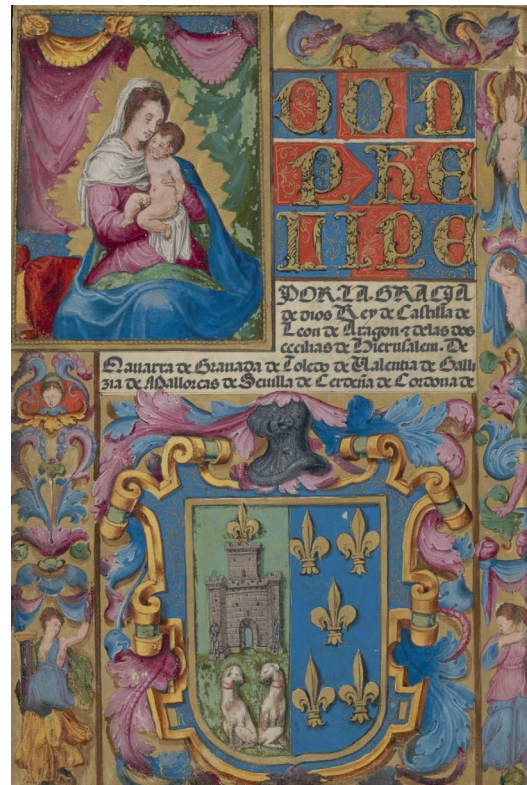 DON
PHE
LIPE
POR.LA.GRACIA
de dios Rey de Castilla de
Leon de Aragon ⁊ de las dos
cecilias de Hierusalem. De
Nauarra de Granada de Toledo de Ualentia de Galli
zia de Mallorcas de Seuilla de Cerdeña de Cordoua de